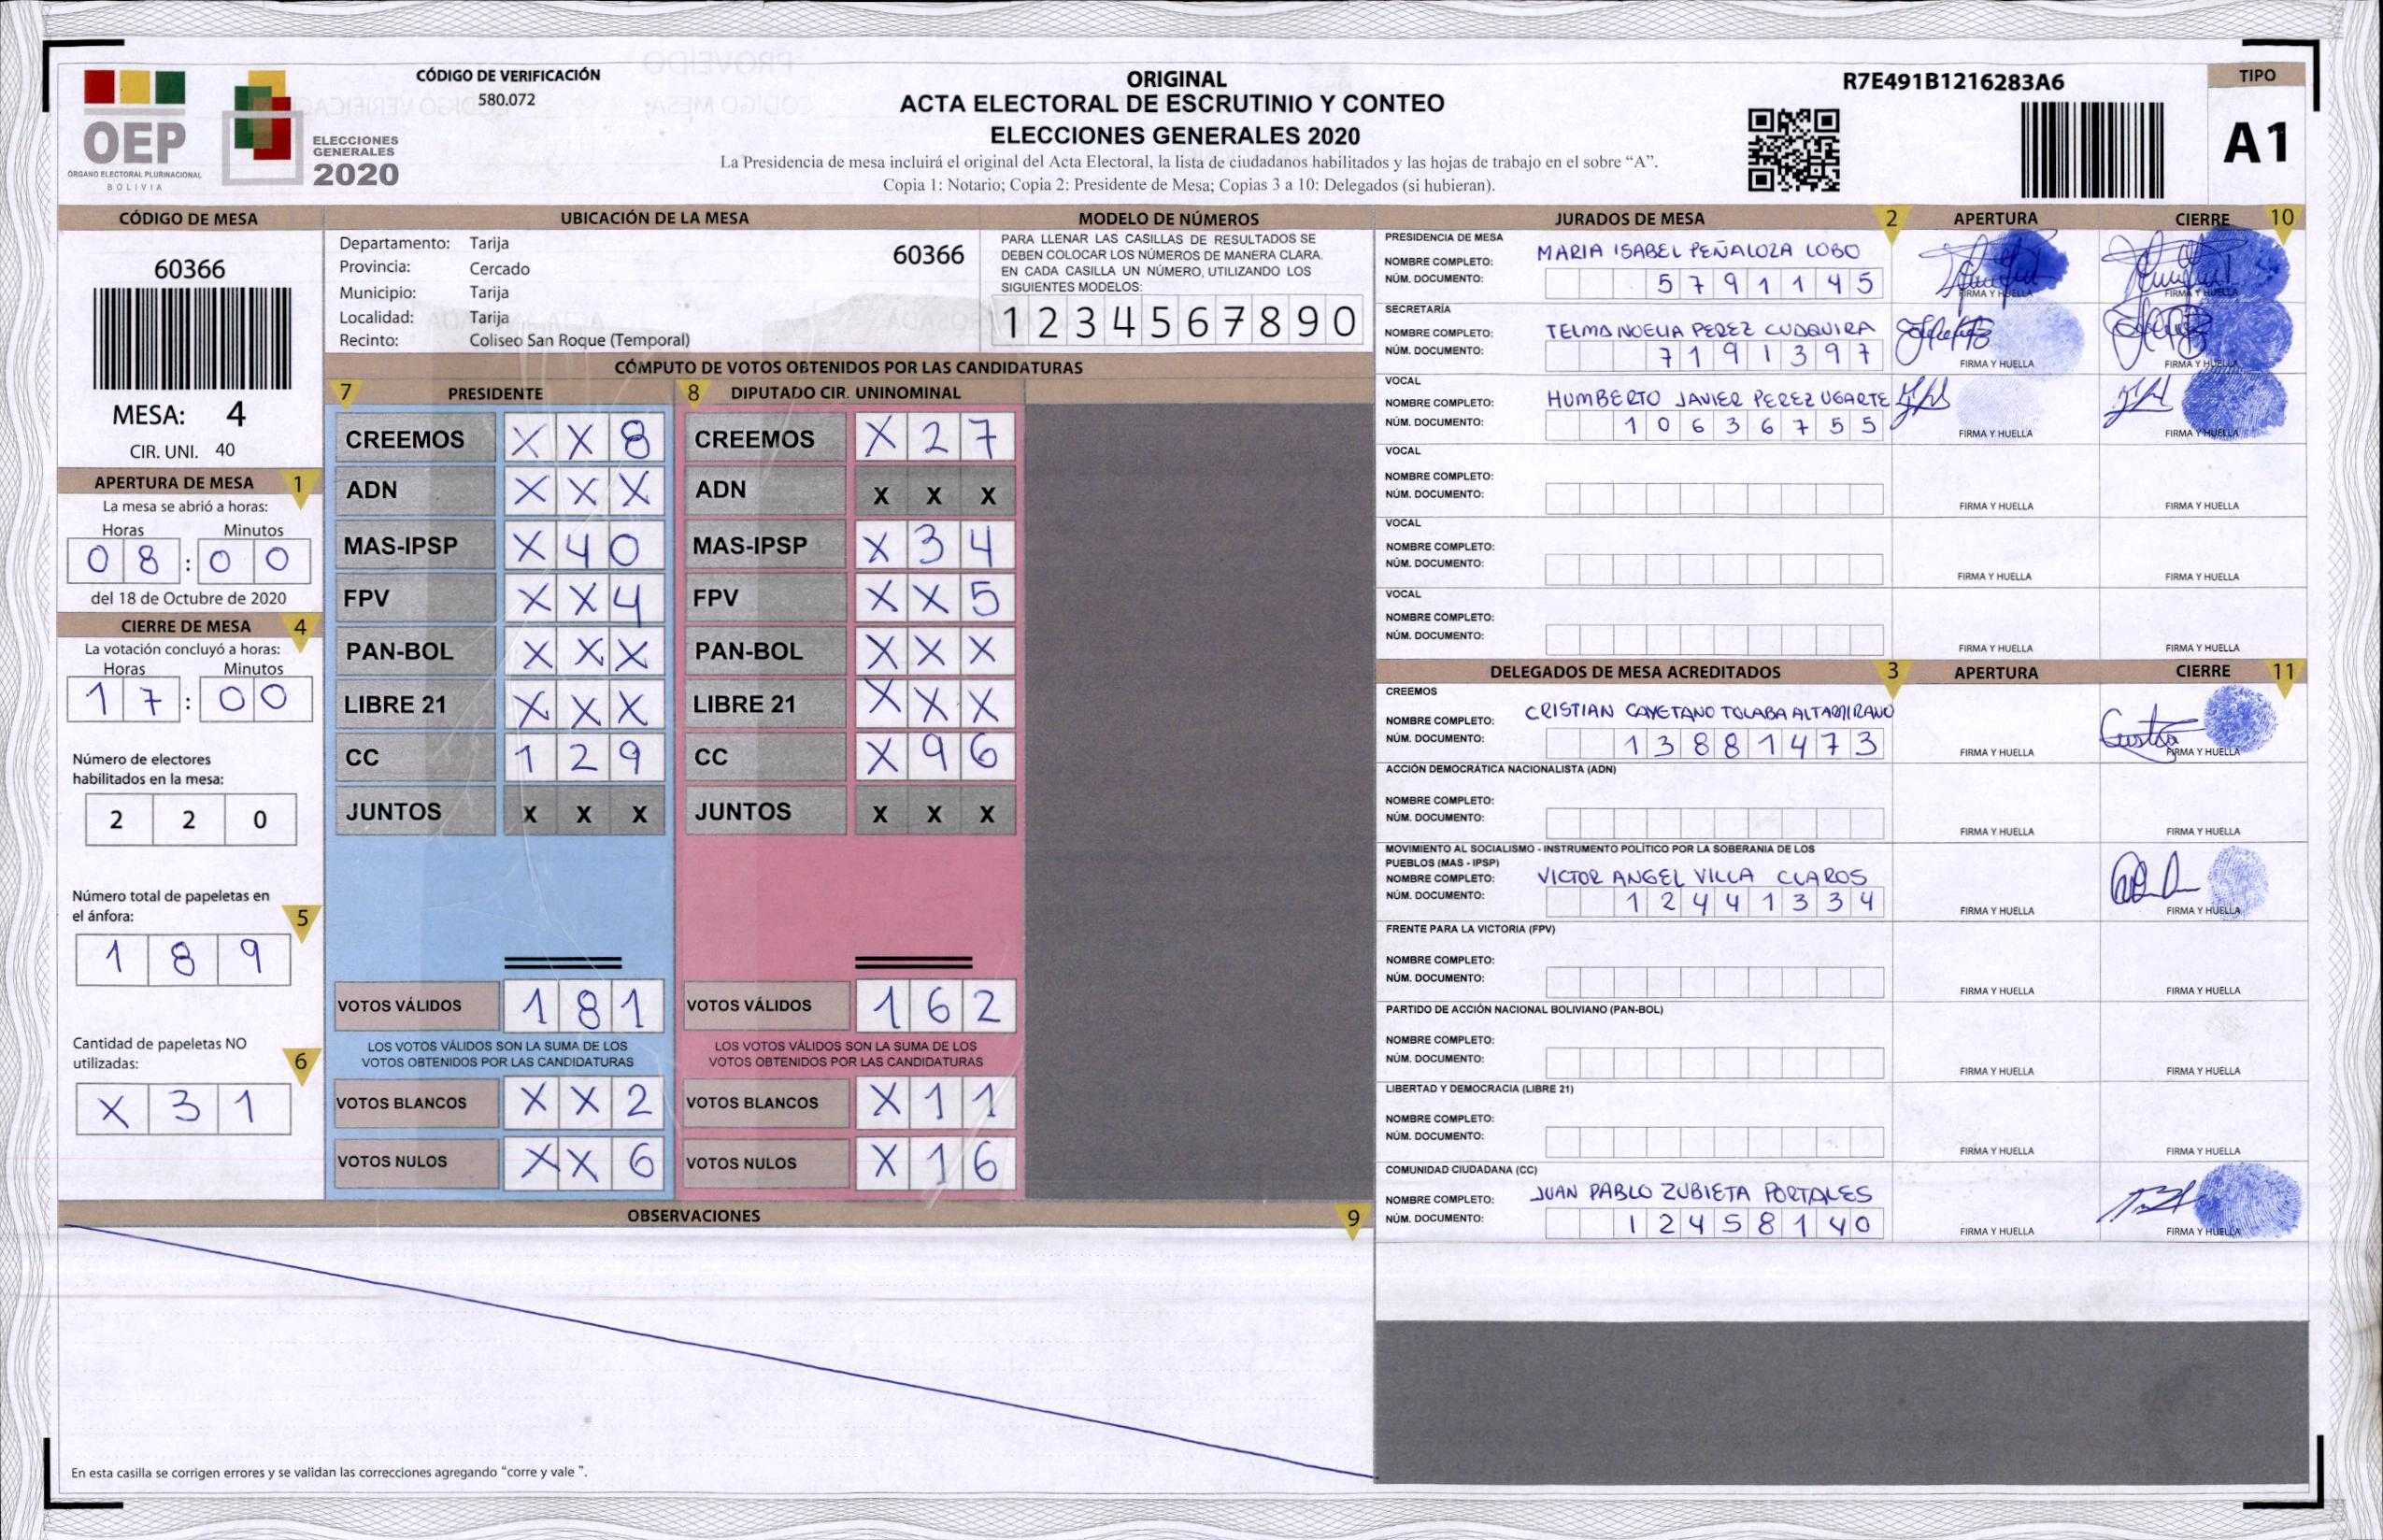 OEP
ÓRGANO ELECTORAL PLURINACIONAL
BOLIVIA
ELECCIONES
GENERALES
2020
CÓDIGO DE VERIFICACIÓN
580.072
ORIGINAL
ACTA ELECTORAL DE ESCRUTINIO Y CONTEO
ELECCIONES GENERALES 2020
La Presidencia de mesa incluirá el original del Acta Electoral, la lista de ciudadanos habilitados y las hojas de trabajo en el sobre “A”.
Copia 1: Notario; Copia 2: Presidente de Mesa; Copias 3 a 10: Delegados (si hubieran).
R7E491B1216283A6
TIPO
A1
CÓDIGO DE MESA
60366
MESA: 4
CIR. UNI. 40
APERTURA DE MESA 1
La mesa se abrió a horas:
Horas Minutos
0 8 : 0 0
del 18 de Octubre de 2020
CIERRE DE MESA 4
La votación concluyó a horas:
Horas Minutos
1 7 : 0 0
Número de electores
habilitados en la mesa:
2 2 0
Número total de papeletas en
el ánfora: 5
1 8 9
Cantidad de papeletas NO
utilizadas: 6
X 3 1
UBICACIÓN DE LA MESA
Departamento: Tarija
60366
Provincia: Cercado
Municipio: Tarija
Localidad: Tarija
Recinto: Coliseo San Roque (Temporal)
MODELO DE NÚMEROS
PARA LLENAR LAS CASILLAS DE RESULTADOS SE
DEBEN COLOCAR LOS NÚMEROS DE MANERA CLARA.
EN CADA CASILLA UN NÚMERO, UTILIZANDO LOS
SIGUIENTES MODELOS:
1 2 3 4 5 6 7 8 9 0
CÓMPUTO DE VOTOS OBTENIDOS POR LAS CANDIDATURAS
7 PRESIDENTE 8 DIPUTADO CIR. UNINOMINAL
CREEMOS X X 8 CREEMOS X 2 7
ADN X X X ADN X X X
MAS-IPSP X 4 0 MAS-IPSP X 3 4
FPV X X 4 FPV X X 5
PAN-BOL X X X PAN-BOL X X X
LIBRE 21 X X X LIBRE 21 X X X
CC 1 2 9 CC X 9 6
JUNTOS X X X JUNTOS X X X
VOTOS VÁLIDOS 1 8 1 VOTOS VÁLIDOS 1 6 2
LOS VOTOS VÁLIDOS SON LA SUMA DE LOS LOS VOTOS VÁLIDOS SON LA SUMA DE LOS
VOTOS OBTENIDOS POR LAS CANDIDATURAS VOTOS OBTENIDOS POR LAS CANDIDATURAS
VOTOS BLANCOS X X 2 VOTOS BLANCOS X 1 1
VOTOS NULOS X X 6 VOTOS NULOS X 1 6
OBSERVACIONES 9
En esta casilla se corrigen errores y se validan las correcciones agregando “corre y vale ”.
JURADOS DE MESA 2 APERTURA CIERRE 10
PRESIDENCIA DE MESA
NOMBRE COMPLETO: MARIA ISABEL PEÑALOZA LOBO
NÚM. DOCUMENTO: 5 7 9 1 1 4 5
FIRMA Y HUELLA FIRMA Y HUELLA
SECRETARÍA
NOMBRE COMPLETO: TELMA NOELIA PEREZ CUAQUIRA
NÚM. DOCUMENTO: 7 1 9 1 3 9 7
FIRMA Y HUELLA FIRMA Y HUELLA
VOCAL
NOMBRE COMPLETO: HUMBERTO JAVIER PEREZ UGARTE
NÚM. DOCUMENTO: 1 0 6 3 6 7 5 5
FIRMA Y HUELLA FIRMA Y HUELLA
VOCAL
NOMBRE COMPLETO:
NÚM. DOCUMENTO:
FIRMA Y HUELLA FIRMA Y HUELLA
VOCAL
NOMBRE COMPLETO:
NÚM. DOCUMENTO:
FIRMA Y HUELLA FIRMA Y HUELLA
VOCAL
NOMBRE COMPLETO:
NÚM. DOCUMENTO:
FIRMA Y HUELLA FIRMA Y HUELLA
DELEGADOS DE MESA ACREDITADOS 3 APERTURA CIERRE 11
CREEMOS
NOMBRE COMPLETO: CRISTIAN CAYETANO TOLABA ALTAMIRANO
NÚM. DOCUMENTO: 1 3 8 8 1 4 7 3
FIRMA Y HUELLA FIRMA Y HUELLA
ACCIÓN DEMOCRÁTICA NACIONALISTA (ADN)
NOMBRE COMPLETO:
NÚM. DOCUMENTO:
FIRMA Y HUELLA FIRMA Y HUELLA
MOVIMIENTO AL SOCIALISMO - INSTRUMENTO POLÍTICO POR LA SOBERANIA DE LOS
PUEBLOS (MAS - IPSP)
NOMBRE COMPLETO: VICTOR ANGEL VILLA CLAROS
NÚM. DOCUMENTO: 1 2 4 4 1 3 3 4
FIRMA Y HUELLA FIRMA Y HUELLA
FRENTE PARA LA VICTORIA (FPV)
NOMBRE COMPLETO:
NÚM. DOCUMENTO:
FIRMA Y HUELLA FIRMA Y HUELLA
PARTIDO DE ACCIÓN NACIONAL BOLIVIANO (PAN-BOL)
NOMBRE COMPLETO:
NÚM. DOCUMENTO:
FIRMA Y HUELLA FIRMA Y HUELLA
LIBERTAD Y DEMOCRACIA (LIBRE 21)
NOMBRE COMPLETO:
NÚM. DOCUMENTO:
FIRMA Y HUELLA FIRMA Y HUELLA
COMUNIDAD CIUDADANA (CC)
NOMBRE COMPLETO: JUAN PABLO ZUBIETA PORTALES
NÚM. DOCUMENTO: 1 2 4 5 8 1 4 0
FIRMA Y HUELLA FIRMA Y HUELLA